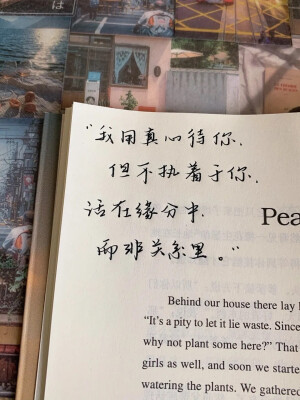 “我用真心待你，
但不执着于你，
活在缘分中，
而非关系里。”
Pea
Behind our house there lay
“It’s a pity to let it lie waste. Since
why not plant some here?” That
girls as well, and soon we started
watering the plants. We gathered